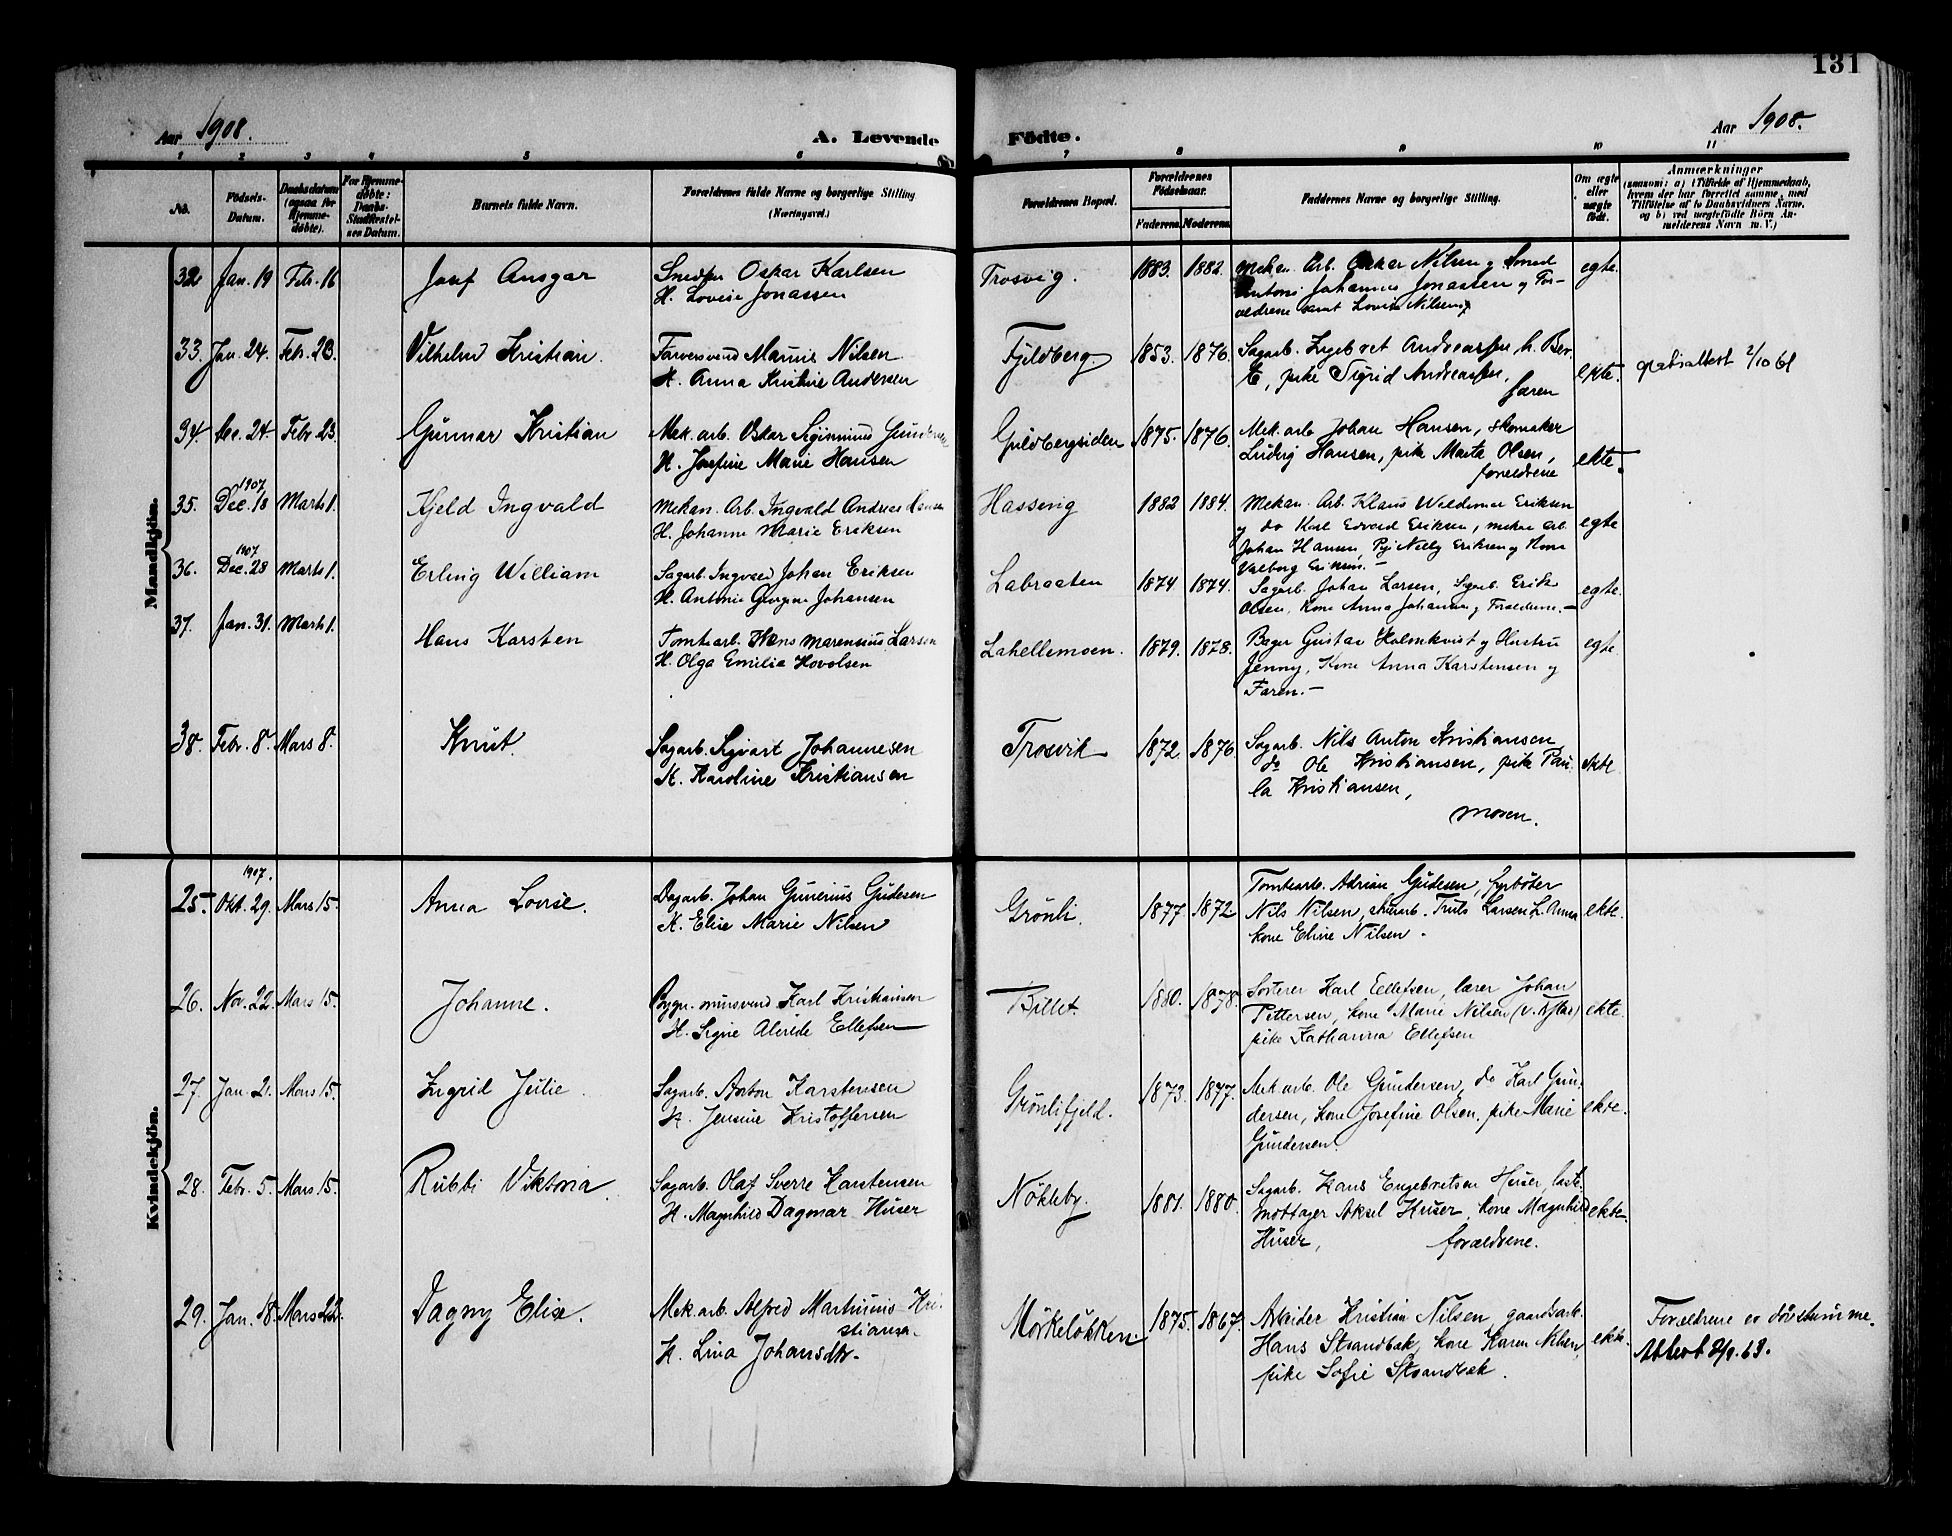 131
Aar 1908.
A. Levende Födte.
Aar 1908.
1 2 3 4 5 6 7 8 9 10 11
No.
Födsels-Datum.
Daabsdatum (ogsaa for Hjemmedøbte).
For Hjemmedøbte: Daabs-Stadfæstelses Datum.
Barnets fulde Navn.
Forældrenes fulde Navne og borgerlige Stilling (Næringsvei.)
Forældrenes Bopæl.
Forældrenes Födselsaar.
Faderens.
Moderens.
Faddernes Navne og borgerlige Stilling.
Om ægte eller uægte födt.
Anmærkninger
(saasom: a) i Tilfælde af Hjemmedaab, hvem der har forrettet samme, med Tilföielse af to Daabsvidners Navne, og b) ved uægtefödte Börn Anmelderens Navn m. V.)
Mandkjön.
32 Jan. 19 Febr. 16 Josef Ansgar
Snedker Oskar Karlsen
H. Lovise Jonassen
Trosvig. 1883. 1882.
Mekan. Arb. Oskar Nilsen og Smed
Antoni Johannes Jonassen og For-
ældrene samt Lovise Nilsen
egte.
33. Jan. 24. Febr. 23. Vilhelm Kristian.
Farversvend Marius Nilsen
H. Anna Kristine Andersen
Fjeldberg. 1853. 1876.
Sagarb. Ingebret Andreassen, h. Ber-
te, pike Sigrid Andreassen,
faren
ekte.
2/10 61
34. Dec. 24. Febr. 23. Gunnar Kristian
Mek. arb. Oskar Sigismund Gundersen
H. Josefine Marie Hansen
Guldbergsiden 1875. 1876.
Mek. arb. Johan Hansen, skomaker
Ludvig Hansen, pike Marta Olsen,
foreldrene
ekte.
35. 1907 Dec. 18 Marts 1. Kjeld Ingvald
Mekan. Arb. Ingvald Andreas Hansen
H. Johanne Marie Eriksen
Hassing 1882 1884.
Mekan. Arb. Klaus Waldemar Eriksen
og do Karl Edvard Eriksen, mekan arb.
Johan Hansen, Pige Nelly Eriksen og Kone
Valborg Eriksen. –
egte
36. 1907 Dec. 28 Marts 1. Erling William
Sagarb. Ingvard Johan Eriksen
H. Antonie Johansen
Labraaten 1874 1874.
Sagarb. Johan Larsen, Sagarb. Erik
Olsen, Kone Anna Johansen og Forældrene. –
egte.
37. Jan. 31. Marts 1. Hans Karsten
Tomtearb. Hans Marensius Larsen
H. Olga Emilia Hovolsen
Lahellemoen. 1879. 1878.
Bager Gustav Holmkvist og Hustru
Jenny, Kone Anna Karstensen og
Faren. –
egte.
38. Febr. 8. Mars 8. Knut.
Sagarb. Sigvart Johannesen
H. Karoline Kristiansen
Trosvik 1872 1876
Sagarb. Nils Anton Kristiansen
do Ole Kristiansen, pike Pau-
la Kristiansen,
moren.
ekte
Kvindekjön.
25. 1907. Okt. 29. Mars 15. Anna Lovise.
Dagarb. Johan Gunerius Gudesen
H. Elise Marie Nilsen
Grönli. 1877. 1872
Tomtearb. Adrian Gudesen, fyrböter
Nils Nilsen, skurarb. Truls Larsen h. Anna
kone Eline Nilsen.
ekte.
26. Nov. 22. Mars 15. Johanne.
Bygn. mursvend Karl Kristiansen
H. Signe Alvide Ellefsen
Billet. 1880. 1878.
Sorterer Karl Ellefsen, lærer Johan
Pettersen, kone Marie Nilsen
pike Kathanna Ellefsen
ekte.
27. Jan. 21. Mars 15. Ingrid Julie.
Sagarb. Anton Karstensen
H. Jensine Kristoffersen
Grönlifjeld. 1873. 1877.
Mek. arb. Ole Gundersen, do Karl Gun-
dersen, kone Josefine Olsen, pike Marie
Gundersen.
ekte.
28. Febr. 5. Mars 15. Rubbi Viktoria.
Sagarb. Olaf Sverre Karstensen
H. Magnhild Dagmar Huser
Nökleby. 1881. 1880.
Sagarb. Hans Engebretsen Huser, last-
mottager Aksel Huser, kone Magnhild
Huser, forældrene.
ekte.
29. Jan. 18. Mars 22. Dagny Elise.
Mek. arb. Alfred Martinius Kri-
stiansen.
H. Lina Johansdtr.
Mörkelökken 1875. 1867.
Arbeider Kristian Nilsen, gaardsarb.
Hans Strandbæk, kone Karen Nilsen,
pike Sofie Strandbæk.
ekte.
Forældrene er dövstumme.
Attest 2/9. 63.